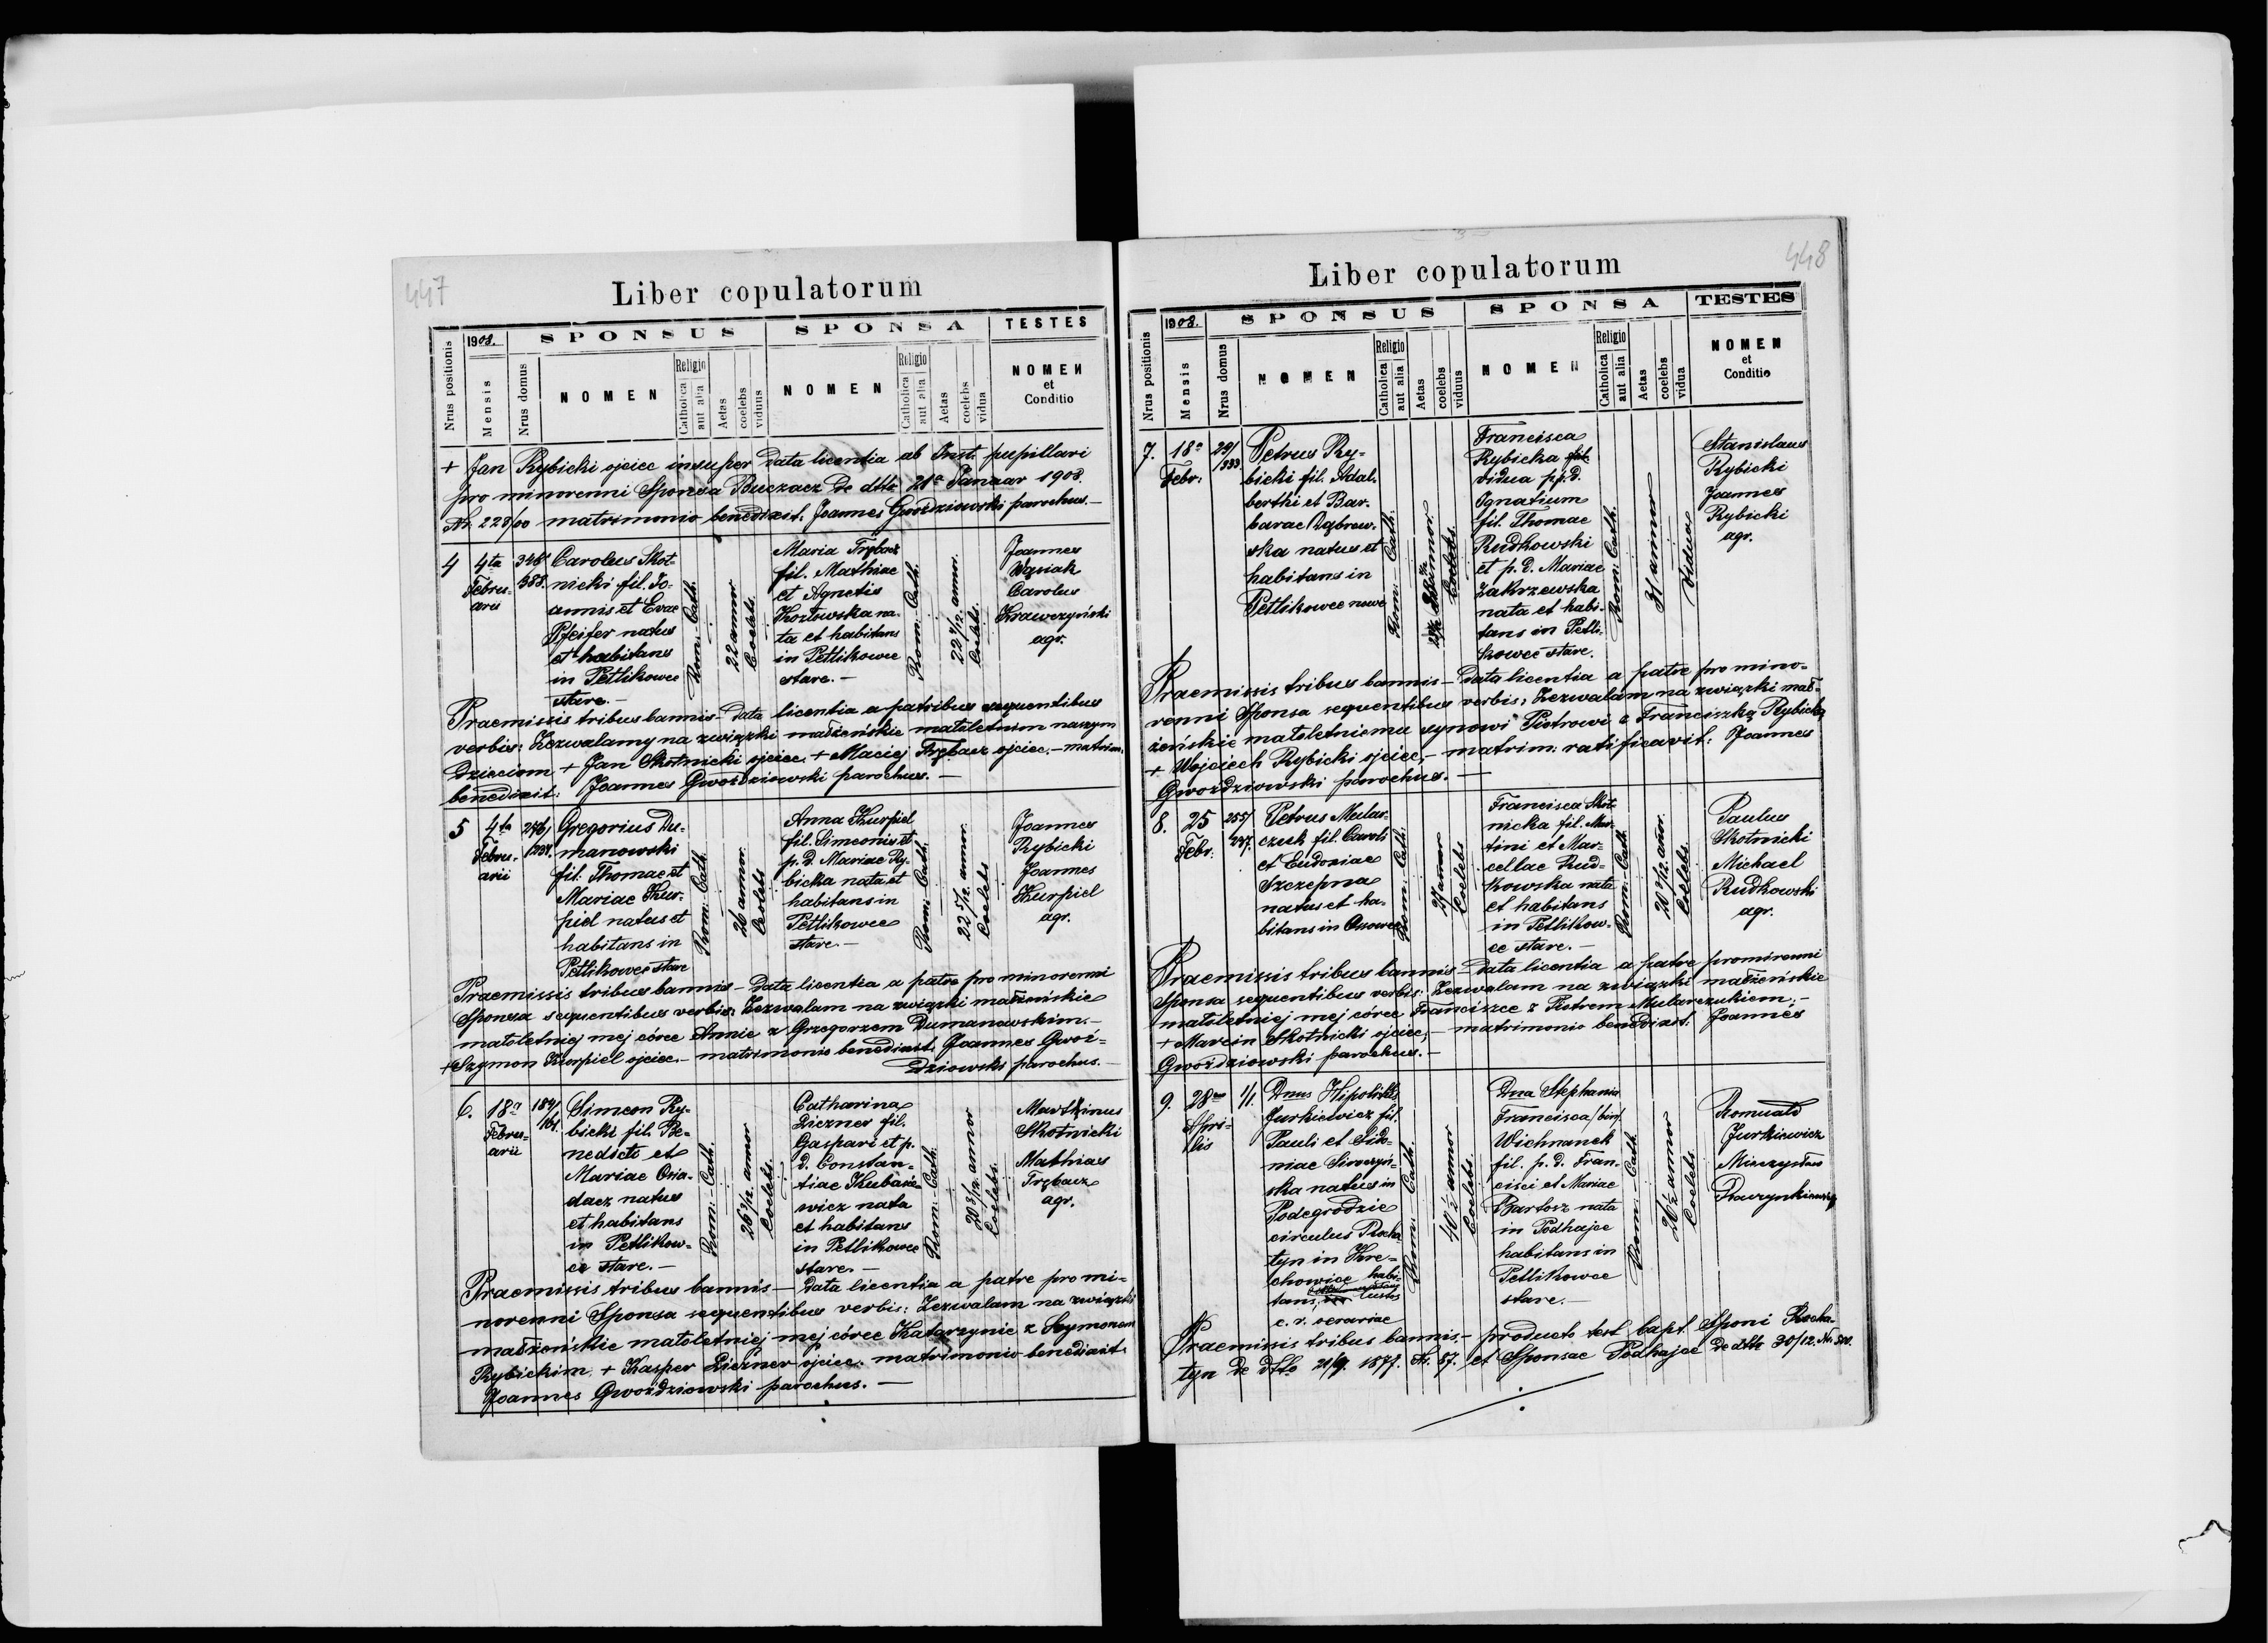 447
Liber copulatorum
Nrus positionis
1908.
Mensis
Nrus domus
SPONSUS
NOMEN
Religio
Catholica
aut alia
Aetas
coelebs
viduus
SPONSA
NOMEN
Religio
Catholica
aut alia
Aetas
coelebs
vidua
TESTES
NOMEN
et
Conditio
+ Jan Rybicki ojciec insuper data licentia ab Inst. pupillari
pro minorenni Sponsa Buczacz de dtto 21a Januar 1908.
Nr. 228/00 matrimonio benedixit: Joannes Gwoździowski parochus.—
4
4ta
Febru-
arii
348/
388.
Carolus Skot-
nicki fil. Jo-
annis et Evae
Pfeifer natus
et habitans
in Petlikowce
stare.—
Rom: Cath.
22 annor
Coelebs.
Maria Trębacz
fil. Mathiae
et Agnetis
Kozłowska na-
ta et habitans
in Petlikowce
stare.—
Rom: Cath.
Coelebs.
Joannes
Wąsiak
Carolus
Krawczyński
agr.
Praemissis tribus bannis— Data licentia a patribus sequentibus
verbis: Zezwalamy na związki małżeńskie małoletnim naszym
dzieciom + Jan Skotnicki ojciec. + Maciej Trębacz ojciec.— matrim.
benedixit: Joannes Gwoździowski parochus.—
5
4ta
Febru-
arii
Gregorius Du-
manowski
fil. Thomae et
Mariae Kur-
piel natus et
habitans in
Petlikowce stare
Rom: Cath.
26 annor.
Coelebs
Anna Kurpiel
fil. Simeonis et
p. d. Mariae Ry-
bicka nata et
habitans in
Petlikowce
stare.—
Rom: Cath.
22 5/12. annor.
Coelebs
Joannes
Rybicki
Joannes
Kurpiel
agr.
Praemissis tribus bannis— Data licentia a patre pro minorenni
Sponsa sequentibus verbis: Zezwalam na związki małżeńskie
małoletniej mej córce Annie z Grzegorzem Dumanowskim.—
+ Szymon Kurpiel ojciec.— matrimonio benedixit: Joannes Gwoź-
dziowski parochus.—
6.
18a
Febru-
arii
184/
161.
Simeon Ry-
bicki fil. Be-
nedicti et
Mariae Osia-
dacz natus
et habitans
in Petlikow-
ce stare.—
Rom: Cath.
26 3/12. annor
Coelebs.
Catharina
Liczner fil.
Gaspari et p.
d. Constan-
tiae Kubasie-
wicz nata
et habitans
in Petlikowce
stare.—
Rom: Cath.
20 3/12. annor
Coelebs.
Marthinus
Skotnicki
Mathias
Trębacz
agr.
Praemissis tribus bannis— Data licentia a patre pro mi-
norenni Sponsa sequentibus verbis: Zezwalam na związki
małżeńskie małoletniej mej córce Katarzynie z Szymonem
Rybickim. + Kasper Liczner ojciec. matrimonio benedixit.
Joannes Gwoździowski parochus.—
448
Liber copulatorum
Nrus positionis
1908.
Mensis
Nrus domus
SPONSUS
NOMEN
Religio
Catholica
aut alia
Aetas
coelebs
viduus
SPONSA
NOMEN
Religio
Catholica
aut alia
Aetas
coelebs
vidua
TESTES
NOMEN
et
Conditio
7.
18a
Febr:
29/
333.
Petrus Ry-
bicki fil. Adal-
berthi et Bar-
barae Dąbrow-
ska natus et
habitans in
Petlikowce nowe
Rom: Cath.
annor.
Coelebs.
Francisca
Rybicka
vidua p. p. d.
Ignatium
fil. Thomae
Rudkowski
et p. d. Mariae
Zakrzewska
nata et habi-
tans in Petli-
kowce stare.
Rom: Cath.
31 annor
Vidua
Stanislaus
Rybicki
Joannes
Rybicki
agr.
Praemissis tribus bannis— Data licentia a patre pro mino-
renni Sponsa sequentibus verbis: Zezwalam na związki mał-
żeńskie małoletniemu synowi Piotrowi z Franciszką Rybicką
+ Wojciech Rybicki ojciec,— matrim: ratificavit: Joannes
Gwoździowski parochus.—
8.
25
Febr:
255/
237.
Petrus Mular-
czuk fil. Caroli
et Eudoxiae
Szczepna
natus et ha-
bitans in Ossowce
Rom: Cath:
annor
Coelebs
Francisca Skot-
nicka fil. Mar-
tini et Mar-
cellae Rud-
kowska nata
et habitans
in Petlikow-
ce stare.—
Rom: Cath.
Coelebs.
Paulus
Skotnicki
Michael
Rudkowski
agr.
Praemissis tribus bannis— Data licentia a patre pro minorenni
Sponsa sequentibus verbis: Zezwalam na związki małżeńskie
małoletniej mej córce Franciszce z Piotrem Mularczukiem,—
+ Marcin Skotnicki ojciec,— matrimonio benedixit: Joannes
Gwoździowski parochus.—
9.
28
Apri-
lis
1/1.
Dnus Hipolitus
Jurkiewicz fil.
Pauli et Sido-
niae
ska natus in
Podegrodzie
circulus Roha-
tyn in Kre-
chowice habi-
tans,
Rom: Cath.
40 1/2 annor
Coelebs.
Dna Stephania
Francisca /bin/
Wichnanek
fil. p. d. Fran-
cisci et Mariae
Bartosz nata
in Podhajce
habitans in
Petlikowce
stare.—
Rom: Cath.
26 1/2 annor
Coelebs.
Romuald
Jurkiewicz
Mieczysław
Praemissis tribus bannis,— producto test bapt. Sponi Roha-
tyn de dtto 21/9. 1871. Nr. 87. et Sponsae Podhajce de dtto 30/12. Nr.